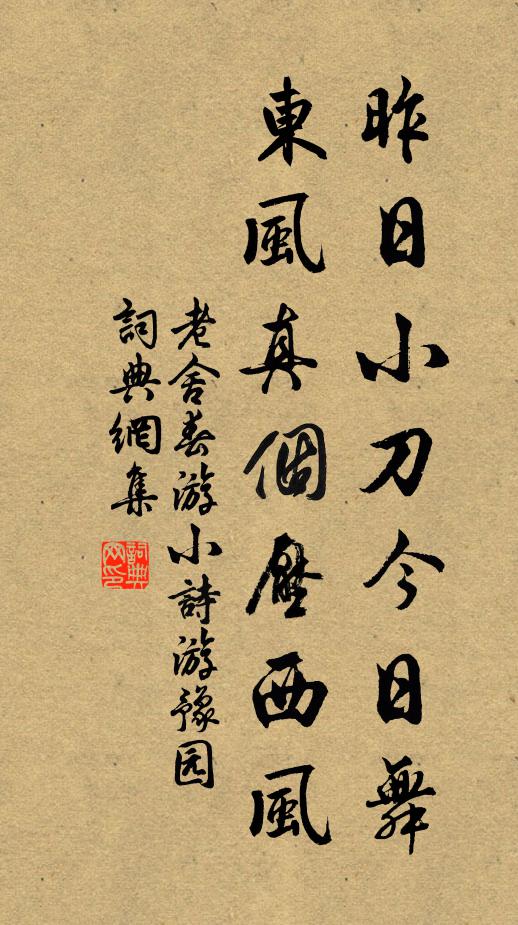 昨日小刀今日舞
東風真個壓西風
老舍春游小詩游豫园
詞典網集
詞典网印